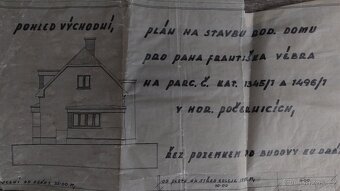 POHLED VÝCHODNÍ,
PLÁN NA STAVBU ROD. DOMU
PRO PANA FRANTIŠKA VÉBRA
NA PARC. Č. KAT. 1345/1 A 1496/1
V HOR. POČERNICÍCH,
ŘEZ POZEMKEM OD BUDOVY KU DRÁ